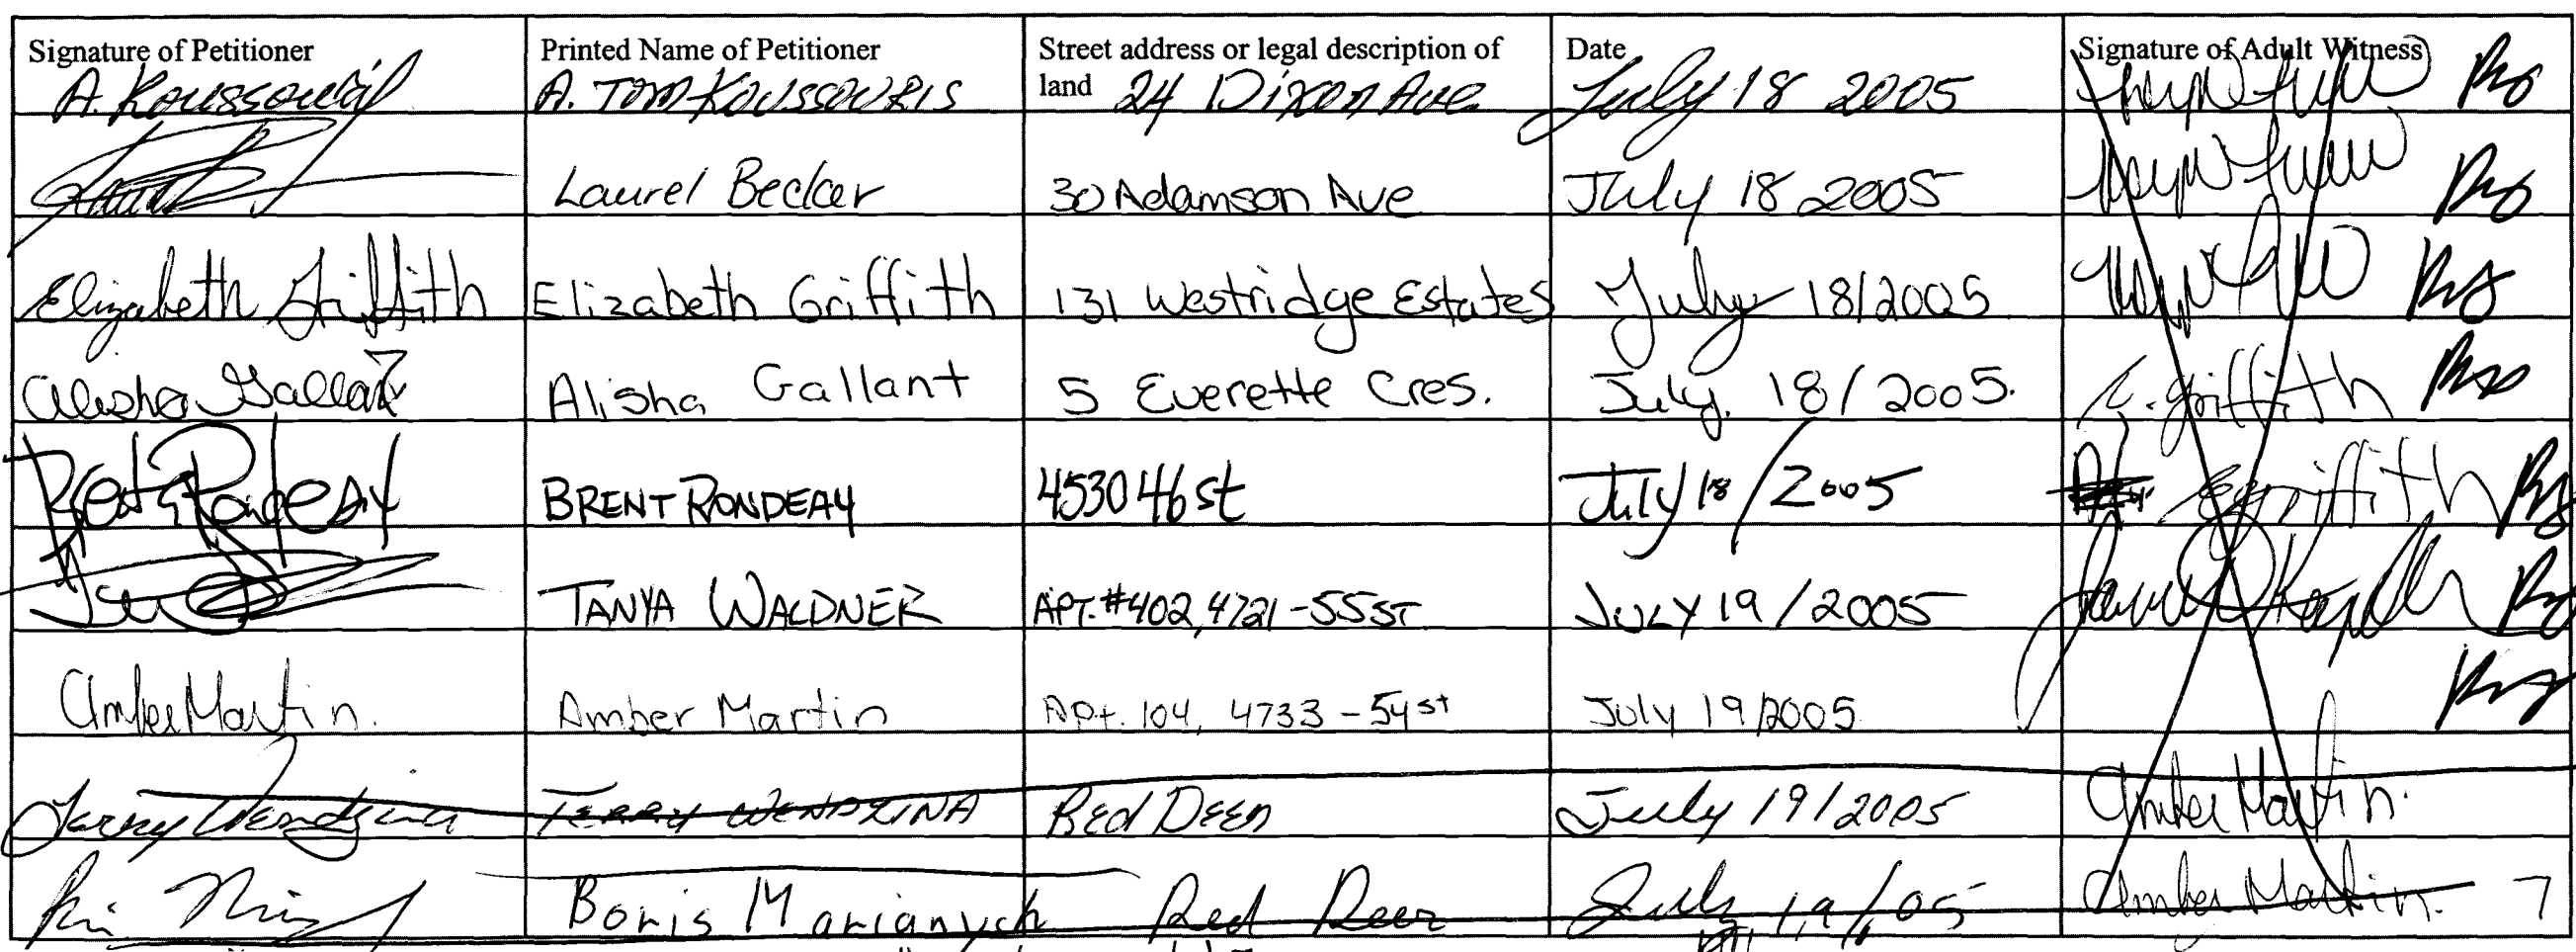 Signature of Petitioner Printed Name of Petitioner Street address or legal description of land Date Signature of Adult Witness
A. Koussouris A. TOM KOUSSOURIS 24 Dixon Ave July 18 2005
Laurel Becker 30 Adamson Ave July 18 2005
Elizabeth Griffith Elizabeth Griffith 131 Westridge Estates July 18/2005
Alisha Gallant Alisha Gallant 5 Everette Cres. July. 18/2005. E. Griffith
Brent Rondeay BRENT RONDEAY 4530 46 st July 18/2005 E Griffith
TANYA WALDNER APT. #402, 4721-55 ST JULY 19/2005
Amber Martin. Amber Martin Apt. 104, 4733-54 st July 19/2005
Terry Wendzina TERRY WENDZINA Red Deer July 19/2005 Amber Martin.
Boris Marianych Red Deer July 19/05 Amber Martin. 7